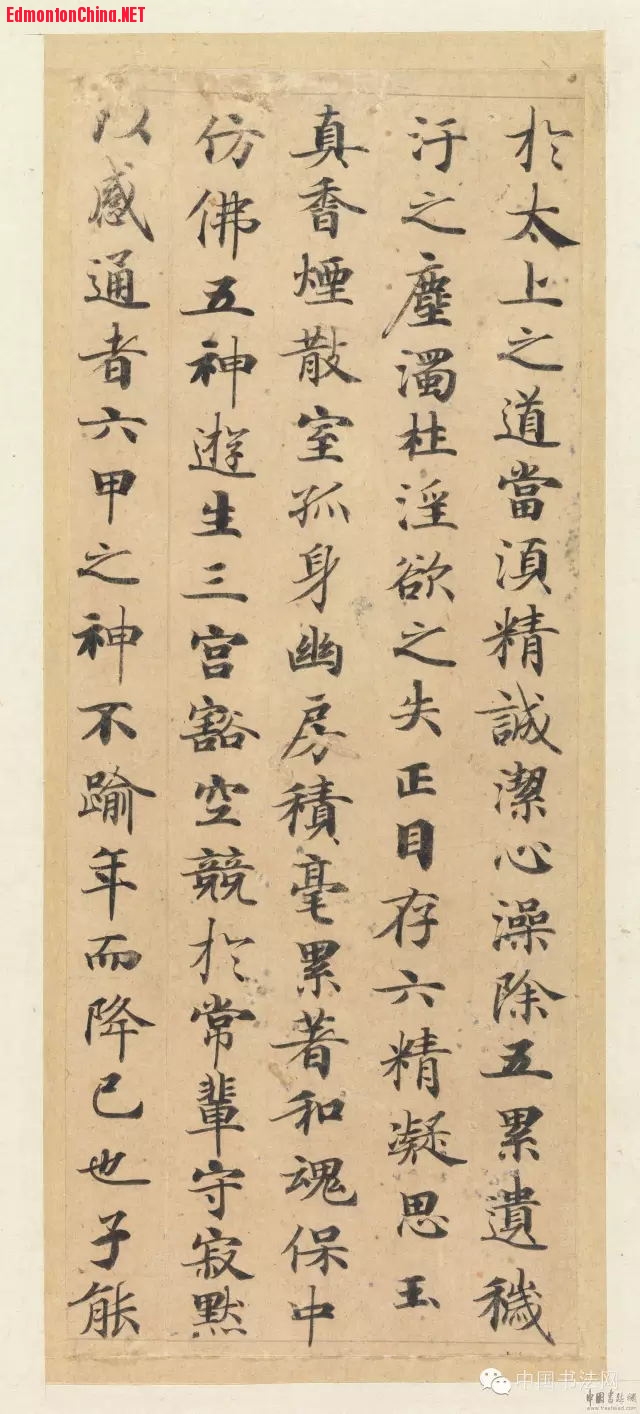 EdmontonChina.NET
於太上之道當湏精誠潔心澡除五累遺穢
汙之塵濁杜淫欲之失正目存六精凝思玉
真香煙散室孤身幽房積毫累著和魂保中
仿佛五神遊生三宮豁空競於常輩守寂默
以感通者六甲之神不踰年而降已也子能
中国书法网
中国书法网
www.freehead.com